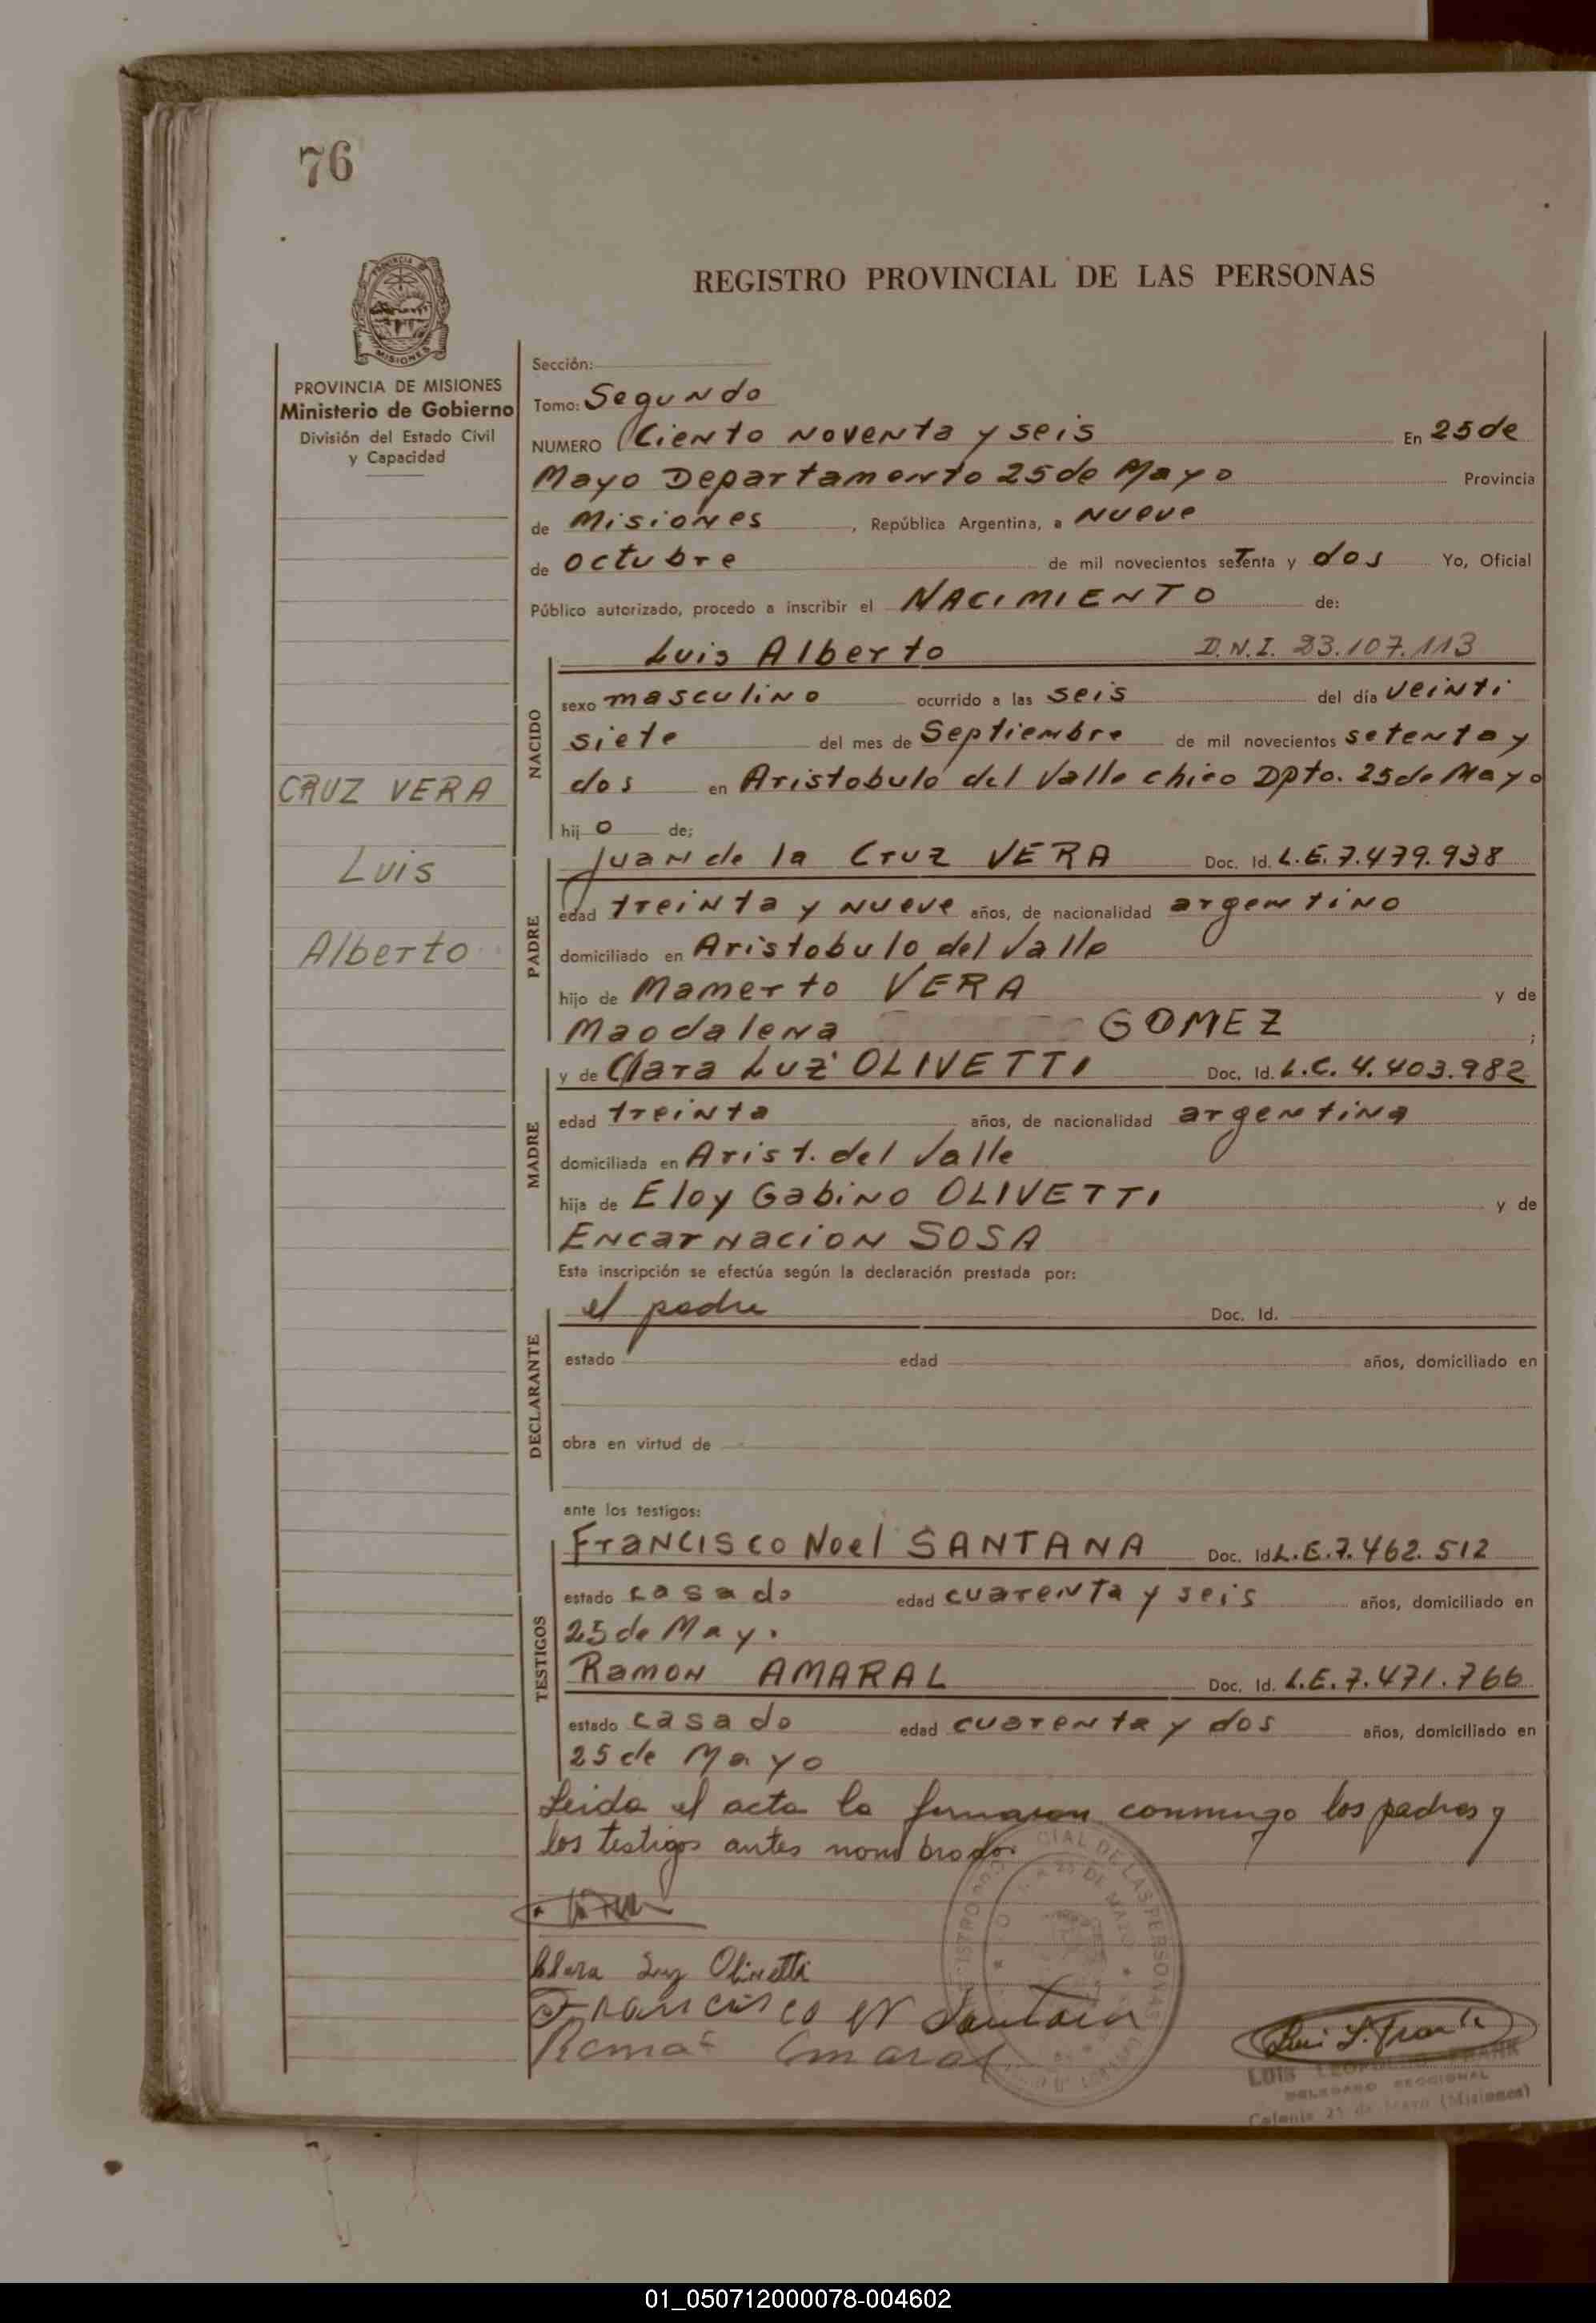 76
PROVINCIA DE MISIONES
Ministerio de Gobierno
División del Estado Civil
y Capacidad
CRUZ VERA
Luis
Alberto
REGISTRO PROVINCIAL DE LAS PERSONAS
Sección:
Tomo: Segundo
NUMERO Ciento Noventa y seis En 25 de
Mayo Departamento 25 de Mayo Provincia
de Misiones, República Argentina, a Nueve
de octubre de mil novecientos setenta y dos Yo, Oficial
Público autorizado, procedo a inscribir el NACIMIENTO de:
NACIDO
Luis Alberto D.N.I. 23.107.113
sexo masculino ocurrido a las seis del día veinti
siete del mes de Septiembre de mil novecientos setenta y
dos en Aristobulo del Valle chico Dpto. 25 de Mayo
hij o de;
PADRE
Juan de la Cruz VERA Doc. Id. L.E. 7.479.938
edad treinta y nueve años, de nacionalidad argentino
domiciliado en Aristobulo del Valle
hijo de Mamerto VERA y de
Magdalena GOMEZ ;
MADRE
y de Clara Luz OLIVETTI Doc. Id. L.C. 4.403.982
edad treinta años, de nacionalidad argentina
domiciliada en Arist. del Valle
hija de Eloy Gabino OLIVETTI y de
Encarnacion SOSA
Esta inscripción se efectúa según la declaración prestada por:
DECLARANTE
el padre Doc. Id.
estado edad años, domiciliado en
obra en virtud de
ante los testigos:
TESTIGOS
Francisco Noel SANTANA Doc. Id L.E. 7.462.512
estado casado edad cuarenta y seis años, domiciliado en
25 de May.
Ramon AMARAL Doc. Id. L.E. 7.471.766
estado casado edad cuarenta y dos años, domiciliado en
25 de Mayo
Leida el acta la firmaron conmingo los padres y
los testigos antes nombrados
Clara Luz Olivetti
Francisco N Santana
Ramon Amaral
Luis L. Frank
LUIS LEOPOLDO FRANK
DELEGADO SECCIONAL
Colonia 25 de Mayo (Misiones)
01_050712000078-004602